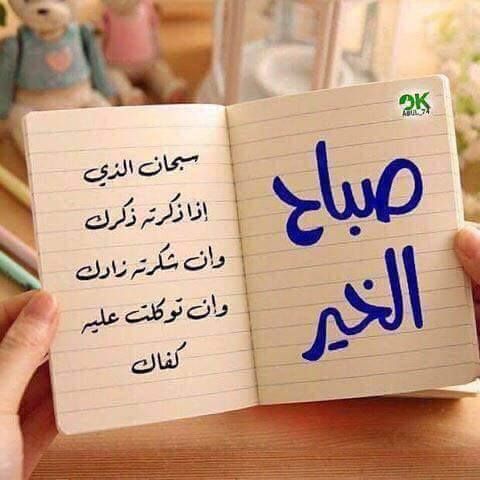 صباح
الخير
سبحان الذي
إذا ذكرته ذكرك
وإن شكرته زادك
وإن توكلت عليه
كفاك
OK
ABUL_74